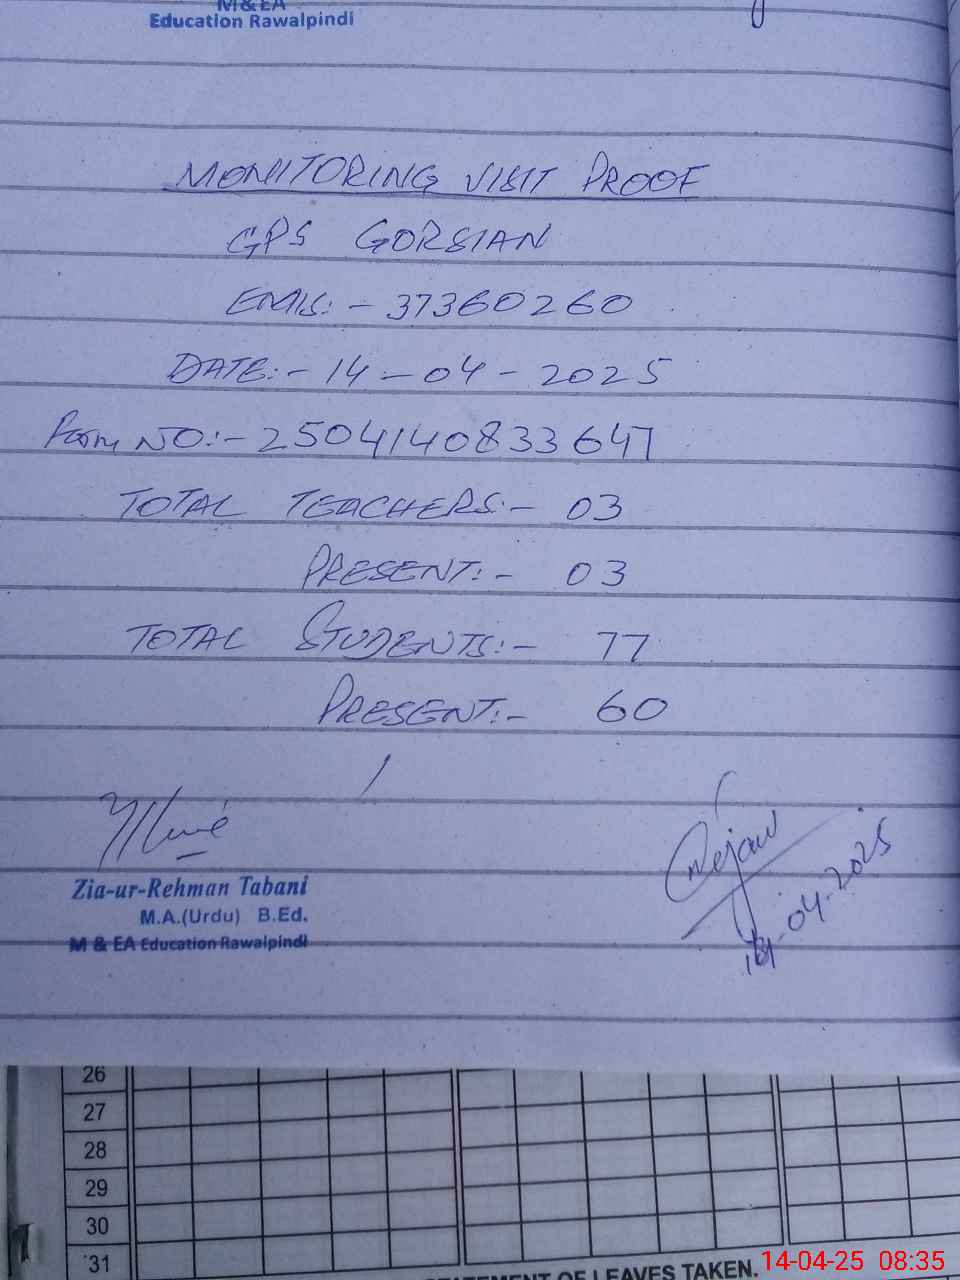 M & EA
Education Rawalpindi
MONITORING VISIT PROOF
GPS GORSIAN
EMIS:- 37360260
DATE:- 14-04-2025
Form NO:- 2504140833647
TOTAL TEACHERS:- 03
PRESENT:- 03
TOTAL STUDENTS:- 77
PRESENT:- 60
Zia-ur-Rehman Tabani
M.A.(Urdu) B.Ed.
M & EA Education Rawalpindi
14-04-2025
26
27
28
29
30
31
OF LEAVES TAKEN.
14-04-25 08:35